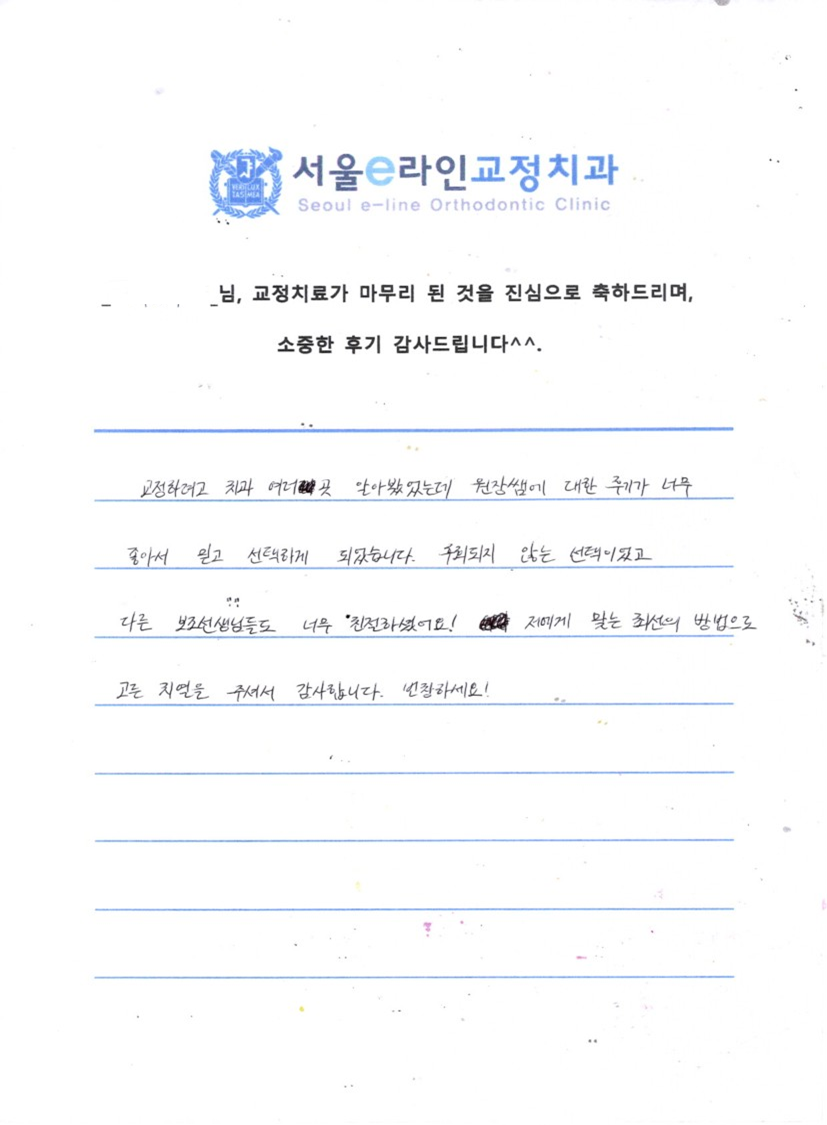 VERI LUX TAS MEA
서울e라인교정치과
Seoul e-line Orthodontic Clinic
님, 교정치료가 마무리 된 것을 진심으로 축하드리며,
소중한 후기 감사드립니다^^.
교정하려고 치과 여러 곳 알아봤었는데 원장쌤에 대한 후기가 너무
좋아서 믿고 선택하게 되었습니다. 후회되지 않는 선택이었고
다른 보조선생님들도 너무 친절하셨어요! 저에게 맞는 최선의 방법으로
고른 치열을 주셔서 감사합니다. 번창하세요!